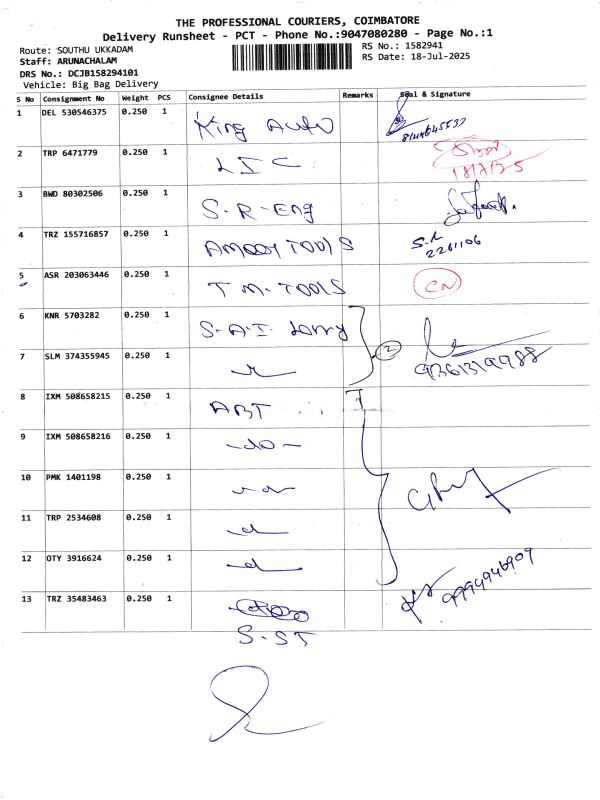 THE PROFESSIONAL COURIERS, COIMBATORE
Delivery Runsheet - PCT - Phone No.:9047080280 - Page No.:1
Route: SOUTHU UKKADAM
RS No.: 1582941
Staff: ARUNACHALAM
RS Date: 18-Jul-2025
DRS No.: DCJB158294101
Vehicle: Big Bag Delivery
S No Consignment No Weight PCS Consignee Details Remarks Seal & Signature
1 DEL 530546375 0.250 1 King Auto
2 TRP 6471779 0.250 1 LIC
18/7/25
3 BWD 80302506 0.250 1 S-R-Eng
4 TRZ 155716857 0.250 1 TOOLS
2261106
5 ASR 203063446 0.250 1 T M-TOOLS CN
6 KNR 5703282 0.250 1 S-A-I Lorry
7 SLM 374355945 0.250 1 2 9361319988
8 IXM 508658215 0.250 1 ABT
9 IXM 508658216 0.250 1 -do-
10 PMK 1401198 0.250 1
11 TRP 2534608 0.250 1 -d-
12 OTY 3916624 0.250 1 -d-
13 TRZ 35483463 0.250 1
S-ST